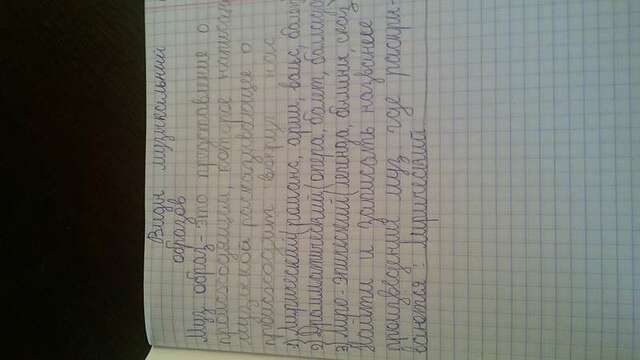 Виды музыкальний
образов
Муз образ - это представление о
происходящем, которое написал
музыкой рассказывающее о
происходит вокруг нас
1) Лирический (романс, ария, вальс, балл
2) Драматический (опера, балет, баллада
3) Лиро-эпический (легенда, былина, сказ
Найти и записать название
произведений муз где раскри-
ваются: Лирический